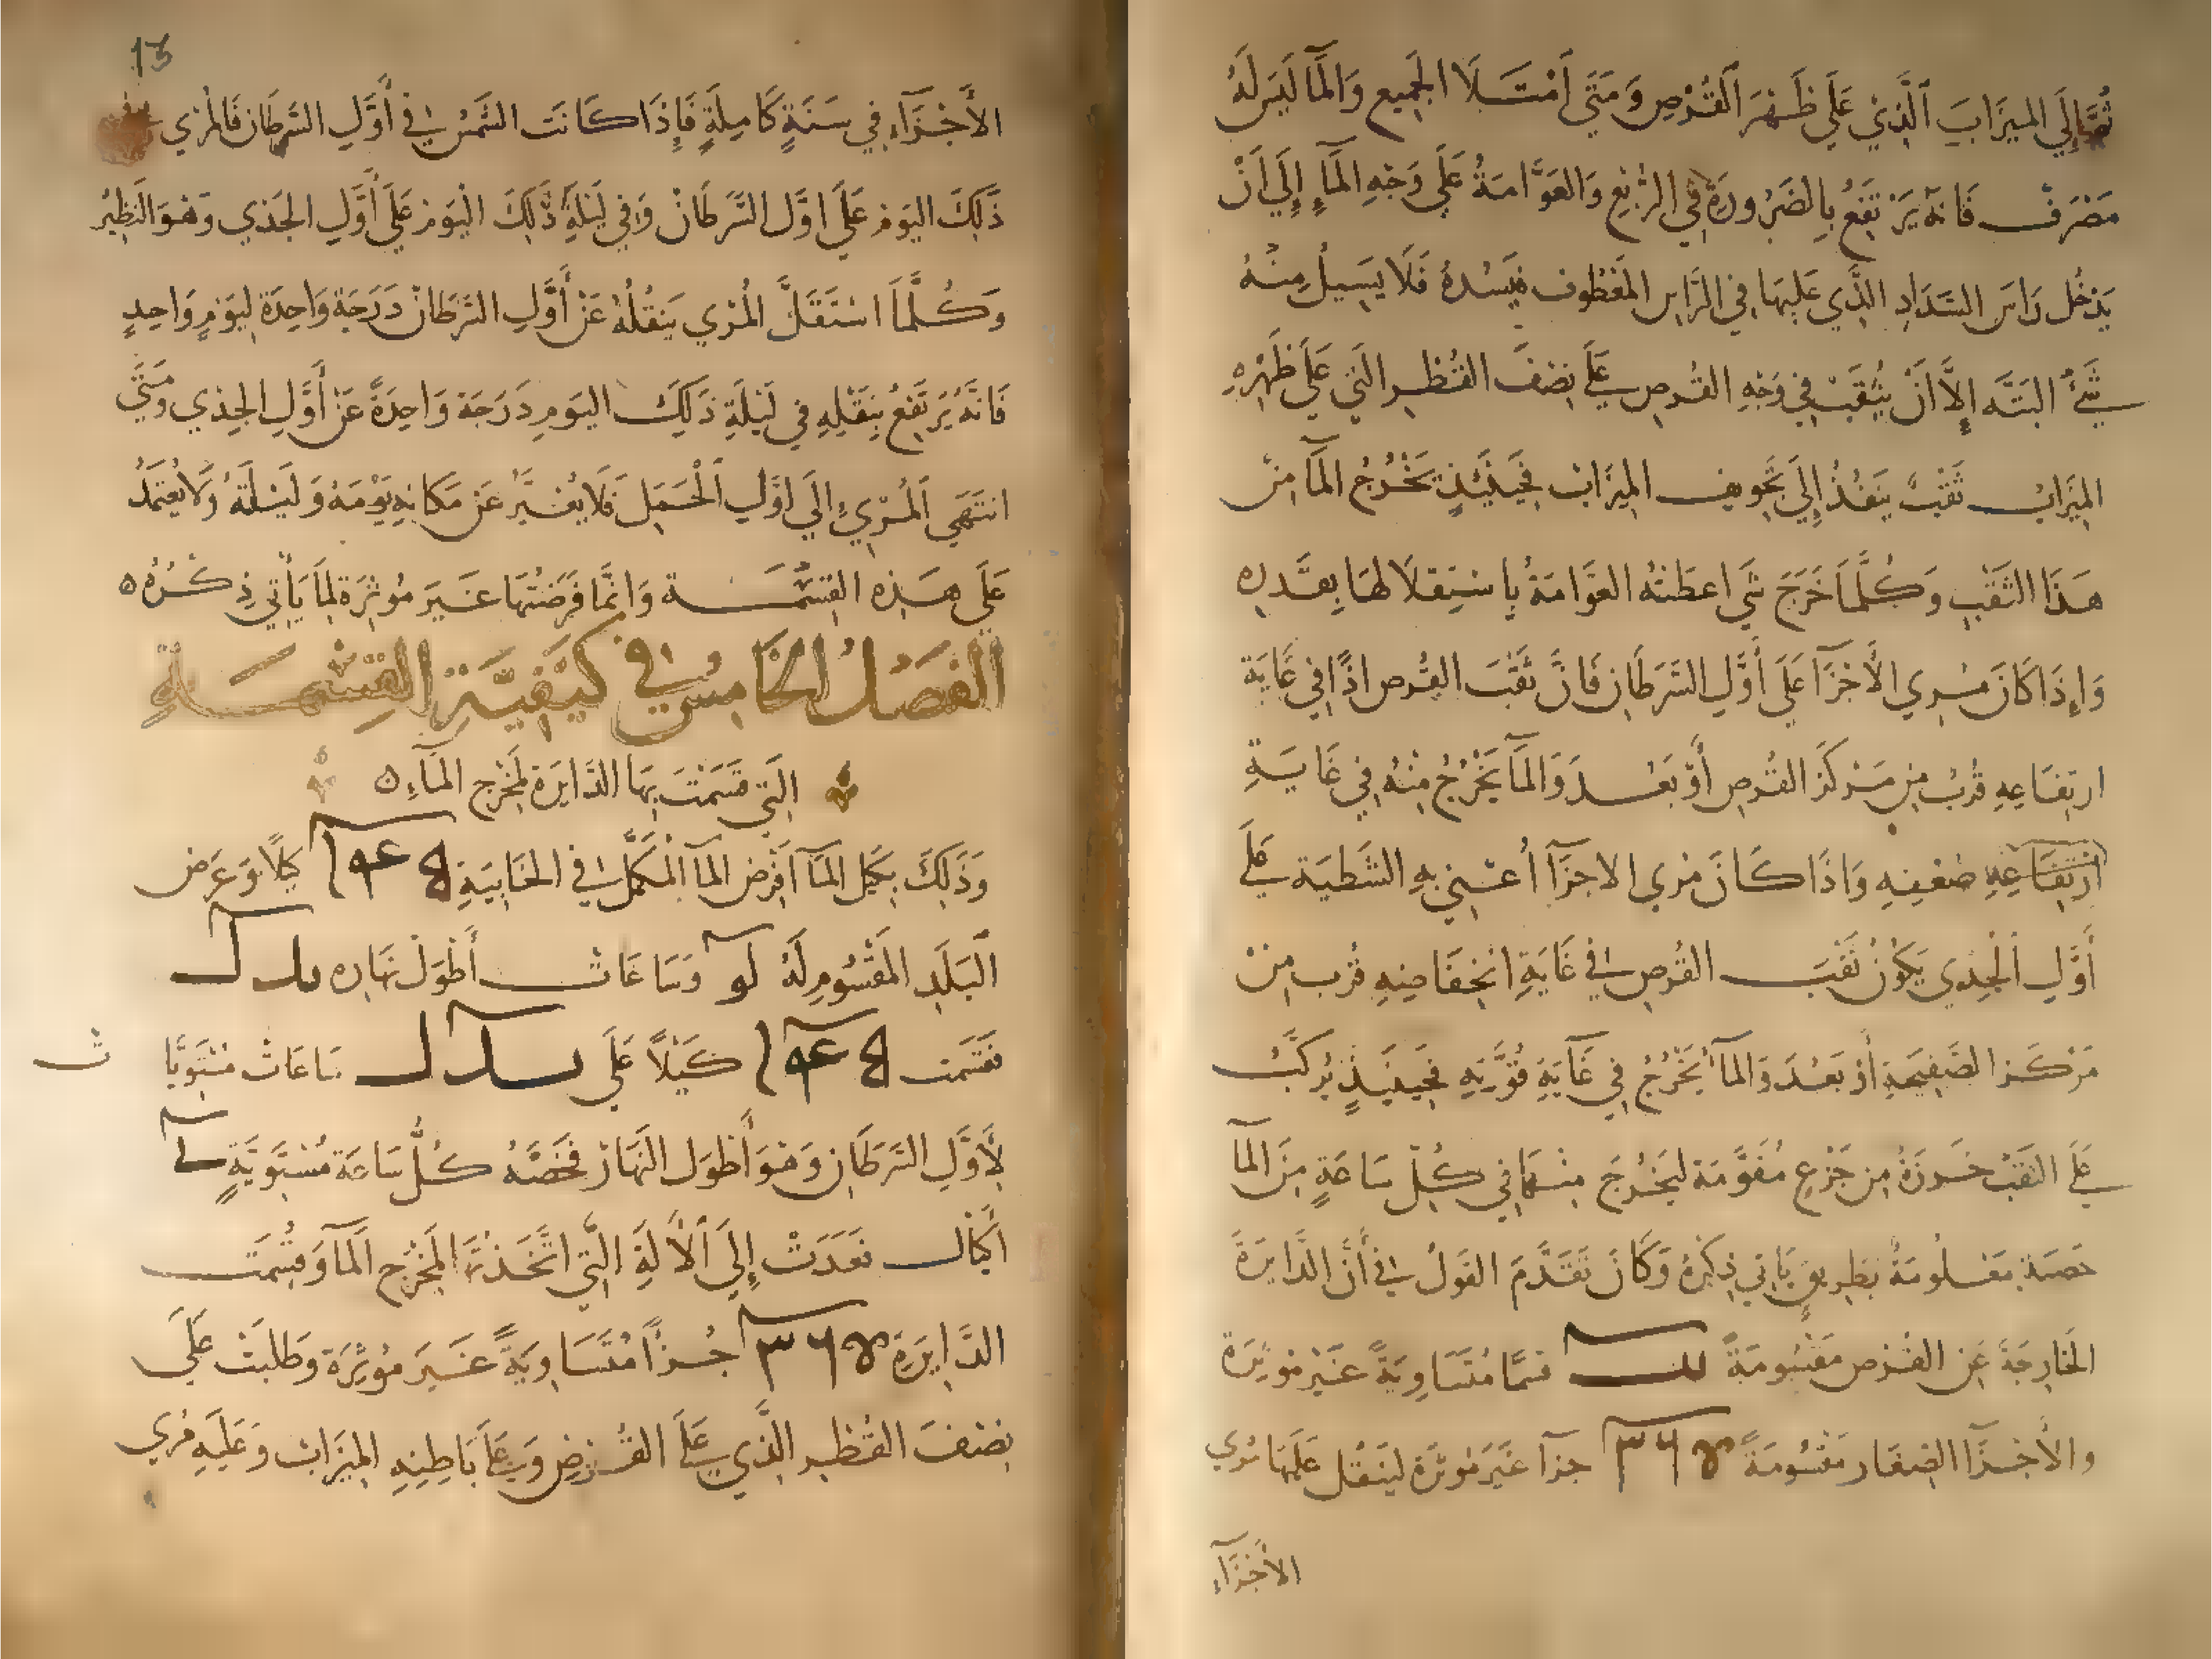 ثُمَّ إِلَى الميزَابِ الَّذِي عَلَى ظَهْرِ القُرْصِ وَمَتَى امْتَلَا الجَمِيع وَالْمَا لَيْسَ لَهُ
مَصْرَف فَانه يَرْتَفِعُ بِالضَرُورَةِ فِي الرُّبْعِ وَالعَوَّامَةُ عَلَى وَجْهِ المَآءِ إِلَى انْ
يَدْخُل رَاسَ السَدَادِ الَّذِي عَلَيهَا فِي الرَّاسِ فيَسُدهُ فَلَا يَسِيلُ مِنْهُ
شَيْءٌ البَتَّه إِلَّا أَنْ يُثْقَبْ فِي وَجْهِ القُرصِ عَلَى نِصْفَ القُطْرِ الَّتِي عَلَى ظَهْرِهِ
المِيزَابُ ثَقْبٌ يَنفُذُ إِلَى تَجْوِيفِ المِيزَابْ فَحِينَئِذٍ يَخْرُجُ المَآ مِنْ
هَذَا الثَقْبِ وَكُلَّمَا خَرَجَ شَي اعطَتْهُ العَوَّامَةُ بِاسْتِفلَالهَا بِقَدَرِه
وَاِذَا كَانَ مُري الأَجْزَآ عَلَى أَوَّلِ السَّرَطَانِ فَانَّ ثَقْبَ القُرص اِذًا فِي غَايَة
ارتِفَاعِهِ قُربْ مِن مَركَز القُرصِ أَوْ بَعُدَ وَالمَآ يَخْرُجُ مِنْهُ فِي غَايَةِ
ارْتِفَاعِهِ ضعْفِهِ وَاذَا كَانَ مُري الاجزَآ أعْنِي بِهِ الشَطيَة عَلَى
أَوَّلِ الْجَدِي يَكُونُ ثَقْبُ القُرصِ فِي غَايَةِ انْخِفَاضِهِ قرُب مِنْ
مَرْكَز الصَفِيحَةِ أَوْ بَعُدَ وَالمَآ يَخْرُجُ فِي غَآيَةِ قُوَّتِهِ فَحِينَئِذٍ يُرَكَّبُ
عَلَى الثَقْبْ خَرزَةُ مِن جَزْعٍ مُقَوَّمَة لِيَخْرُجَ مِنْهَا فِي كُلِّ سَاعَةٍ مِنَ المَآ
حَصَة مَعْلُومَةُ بطرِيقٍ يَاتِي ذِكْرُهُ وَكَانَ تَقَدَّمَ القَولُ فِي أَنَّ الدَّايِرَة
الخَارِجَةَ عَن القُرْصِ مَقْسُومَةً قسمًا مُتَسَاوِيَةً غَيْرَ مُوثِرَة
وَالأَجْزَآ الصِغَار مَقْسُومَةً ٣٦٥ جزآ غَيْرَ مُوثِرَة ليَنقُل عَلَيْهَا مُري
الأَجْزَآءِ
13
الأَجْزَآءِ فِي سَنَةٍ كَامِلَةٍ فَإِذَا كَانَت الشَّمسُ فِي أَوَّلِ السَّرَطَان فَالمُري
ذَلِكَ اليَوم عَلَى اوَّل السَّرَطَانْ وَفِي لَيْلَةِ ذَلِكَ اليَوم عَلَى أَوَّلِ الجَدِي وَهُوَ النَظِيرُ
وَكُلَّمَا اسْتَقَلَّ المُرْي يَنقُلُهُ عَنْ أَوَّلِ السَّرَطَانْ دَرَجَة وَاحِدَة لِيَومٍ وَاحِدٍ
فَانَّهُ يَرتَفِعُ بِنَقْلِهِ فِي لَيْلَةِ ذَلِكَ اليَومِ دَرَجَة وَاحِدَةً عَنْ أَوَّلِ الجَدِي وَمَتَى
انتَهَى المُرْيُ إِلَى اوَّلِ الْحَمَل فَلَا يُغَيَّرُ عَن مَكَانِهِ يَوْمَهُ وَلَيْلَتَهُ وَلَا يُعتَمَدُ
عَلَى هَذِهِ القِسْمَة وَانَّمَا فَرَضتُهَا غَيرَ مُوثِرَة لِمَا يَأْتِي ذِكْرُهُ ه
الفَصْلُ الخَامِسُ فِي كَيْفِيَّةِ القِسْمَةِ
الَّتِي قَسَمْتُ بِهَا الدَّايرَة لمَخْرَجِ المَآءِ ه
وَذَلِكَ بِكَيْل المَآ افْرض المآ المُكَمَّل فِي الخَابِيَةِ كَيْلًا وَعَرَض
البَلَدِ المَقْسُومِ لَهُ لو وَسَاعَاتْ أَطْوَل نَهَارِه يد ل
فَقَسَمت كَيْلًا عَلَى يد ل سَاعَات مُسْتَوِيًا
ت
لأَوَّلِ السَّرَطَانِ وَهُوَ أَطْوَل النَهَار فَحَصَّهُ كُلّ سَاعَة مُسْتَوِيَّةٍ
أكْيَال فعَدَتْ إِلَى الأَلَةِ الَّتِي اتَّخَذْتُهَا لِمَخْرَجِ المَآ وَقَسَمَت
الدَّايِرَةِ ٣٦٥ جُزآً مُتَسَاوِيَةً غَيرَ مُوثِرَة وَطلبَتْ عَلَى
نصْفَ القُطْرِ الَّذِي عَلَى القُرْصِ وَعَلَى بَاطِنِهِ المِيزَابْ وَعَلَيهِ مُري